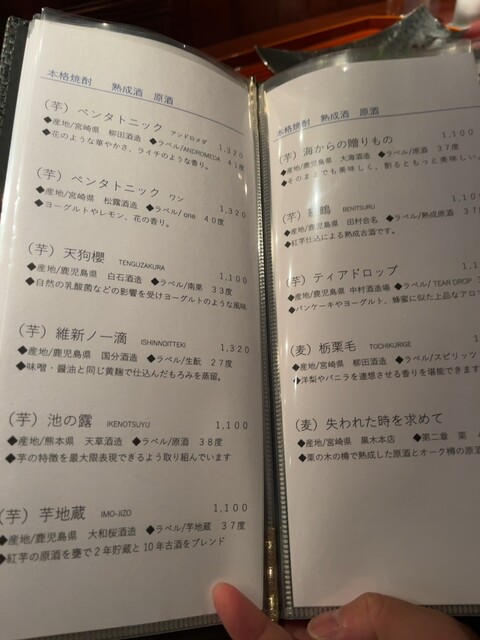 本格焼酎　熟成酒　原酒
（芋）ペンタトニック　アンドロメダ　1,320
◆産地/宮崎県　柳田酒造　◆ラベル/ANDROMEDA　４１度
◆花のような華やかさ、ライチのような香り。
（芋）ペンタトニック　ワン　1,320
◆産地/宮崎県　松露酒造　◆ラベル/one　４０度
◆ヨーグルトやレモン、花の香り。
（芋）天狗櫻　TENGUZAKURA　1,100
◆産地/鹿児島県　白石酒造　◆ラベル/南果　３３度
◆自然の乳酸菌などの影響を受けヨーグルトのような風味
（芋）維新ノ一滴　ISHINNOITTEKI　1,320
◆産地/鹿児島県　国分酒造　◆ラベル/生酛　２７度
◆味噌・醤油と同じ黄麹で仕込んだもろみを蒸留。
（芋）池の露　IKENOTSUYU　1,100
◆産地/熊本県　天草酒造　◆ラベル/原酒　３８度
◆芋の特徴を最大限表現できるよう取り組んでいます
（芋）芋地蔵　IMO-JIZO　1,100
◆産地/鹿児島県　大和桜酒造　◆ラベル/芋地蔵　３７度
◆紅芋の原酒を甕で２年貯蔵と10年古酒をブレンド
本格焼酎　熟成酒　原酒
（芋）海からの贈りもの　1,100
◆産地/鹿児島県　大海酒造　◆ラベル/原酒　３７度
◆そのままでも美味しく、割るともっと美味しい。
（芋）鶴　BENITSURU　1,10
◆産地/鹿児島県　田村合名　◆ラベル/熟成原酒　３７
◆紅芋仕込による熟成古酒です。
（芋）ティアドロップ　1,1
◆産地/鹿児島県　中村酒造場　◆ラベル/ TEAR DROP
◆パンケーキやヨーグルト、蜂蜜に似た上品なアロ
（麦）栃栗毛　TOCHIKURIGE　1,
◆産地/宮崎県　柳田酒造　◆ラベル/スピリッツ
◆洋梨やバニラを連想させる香りを堪能できます
（麦）失われた時を求めて
◆産地/宮崎県　黒木本店　◆第二章　栗
◆栗の木の樽で熟成した原酒とオーク樽の原酒